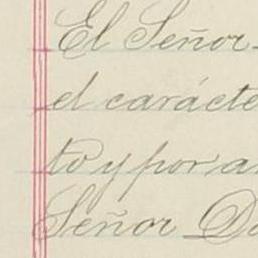 El Señor
el caracte
to y por a
Señor Do